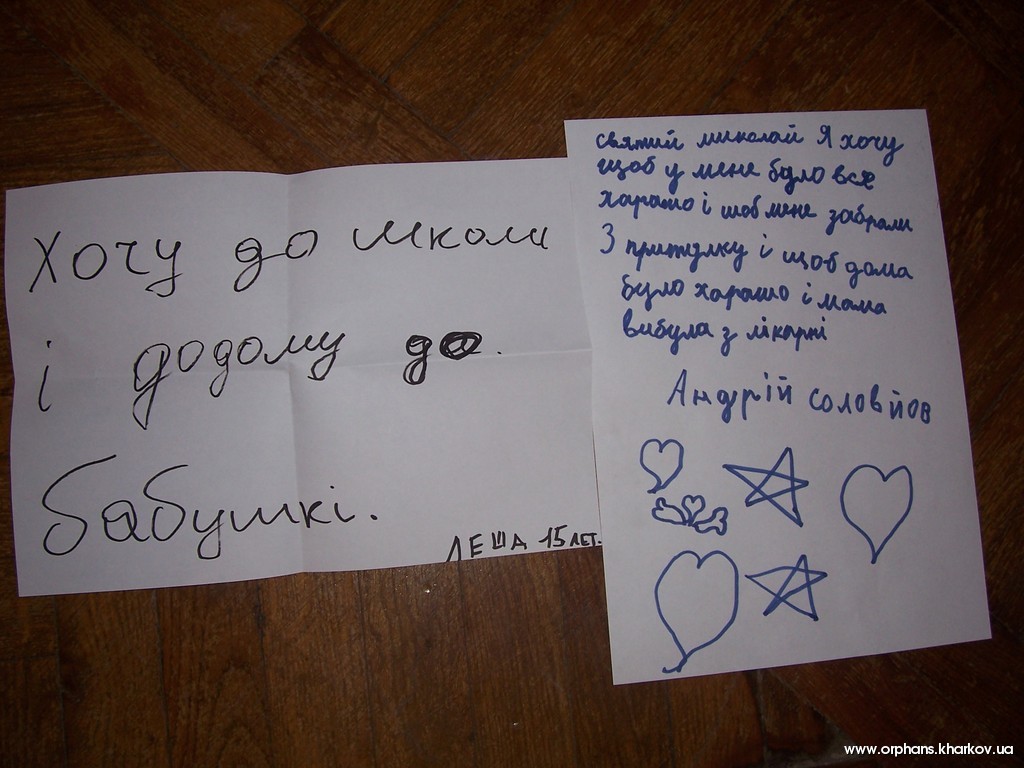 Хочу до школи
і додому до.
бабушкі.
ЛЕША 15 ЛЕТ.
святий миколай Я хочу
щоб у мене було все
харашо і шоб мене забрали
З притулку і щоб дома
було харашо і мама
вибула з лікарні
Андрій соловйов
www.orphans.kharkov.ua